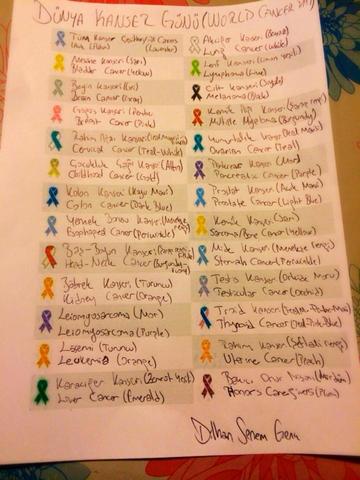 DÜNYA KANSER GÜNÜ (WORLD CANCER DAY)
Tüm Kanser
All (Lavender)
Mesane Kanseri (Sarı)
Bladder Cancer (Yellow)
Beyin Kanseri (Gri)
Brain Cancer (Gray)
Göğüs Kanseri (Pembe)
Breast Cancer (Pink)
Rahim Ağzı Kanseri
Cervical Cancer (Teal-White)
Çocukluk Çağı Kanseri (Altın)
Childhood Cancer (Gold)
Kolon Kanseri (Koyu Mavi)
Colon Cancer (Dark Blue)
Yemek Borusu Kanseri (Menekşe
Esophageal Cancer (Periwinkle)
Baş-Boyun Kanseri
Head-Neck Cancer (Burgundy-
Böbrek Kanseri (Turuncu)
Kidney Cancer (Orange)
Leiomyosarcoma (Mor)
Leiomyosarcoma (Purple)
Lösemi (Turuncu)
Leukemia (Orange)
Karaciğer Kanseri (Zümrüt Yeşili)
Liver Cancer (Emerald)
Akciğer Kanseri (Beyaz)
Lung Cancer (White)
Lenf Kanseri
Lymphoma (Lime)
Cilt Kanseri (Siyah)
Melanoma (Black)
Kemik İliği Kanseri
Multiple Myeloma (Burgundy)
Yumurtalık Kanseri
Ovarian Cancer (Teal)
Pankreas Kanseri (Mor)
Pancreatic Cancer (Purple)
Prostat Kanseri (Açık Mavi)
Prostate Cancer (Light Blue)
Kemik Kanseri (Sarı)
Sarcoma/Bone Cancer (Yellow)
Mide Kanseri (Menekşe Rengi)
Stomach Cancer (Periwinkle)
Testis Kanseri (Orkide Moru)
Testicular Cancer (Orchid)
Tiroid Kanseri
Thyroid Cancer
Rahim Kanseri (Şeftali Rengi)
Uterine Cancer (Peach)
Bakıcı Onur
Honors Caregivers (Plum)
Dilhan Senem